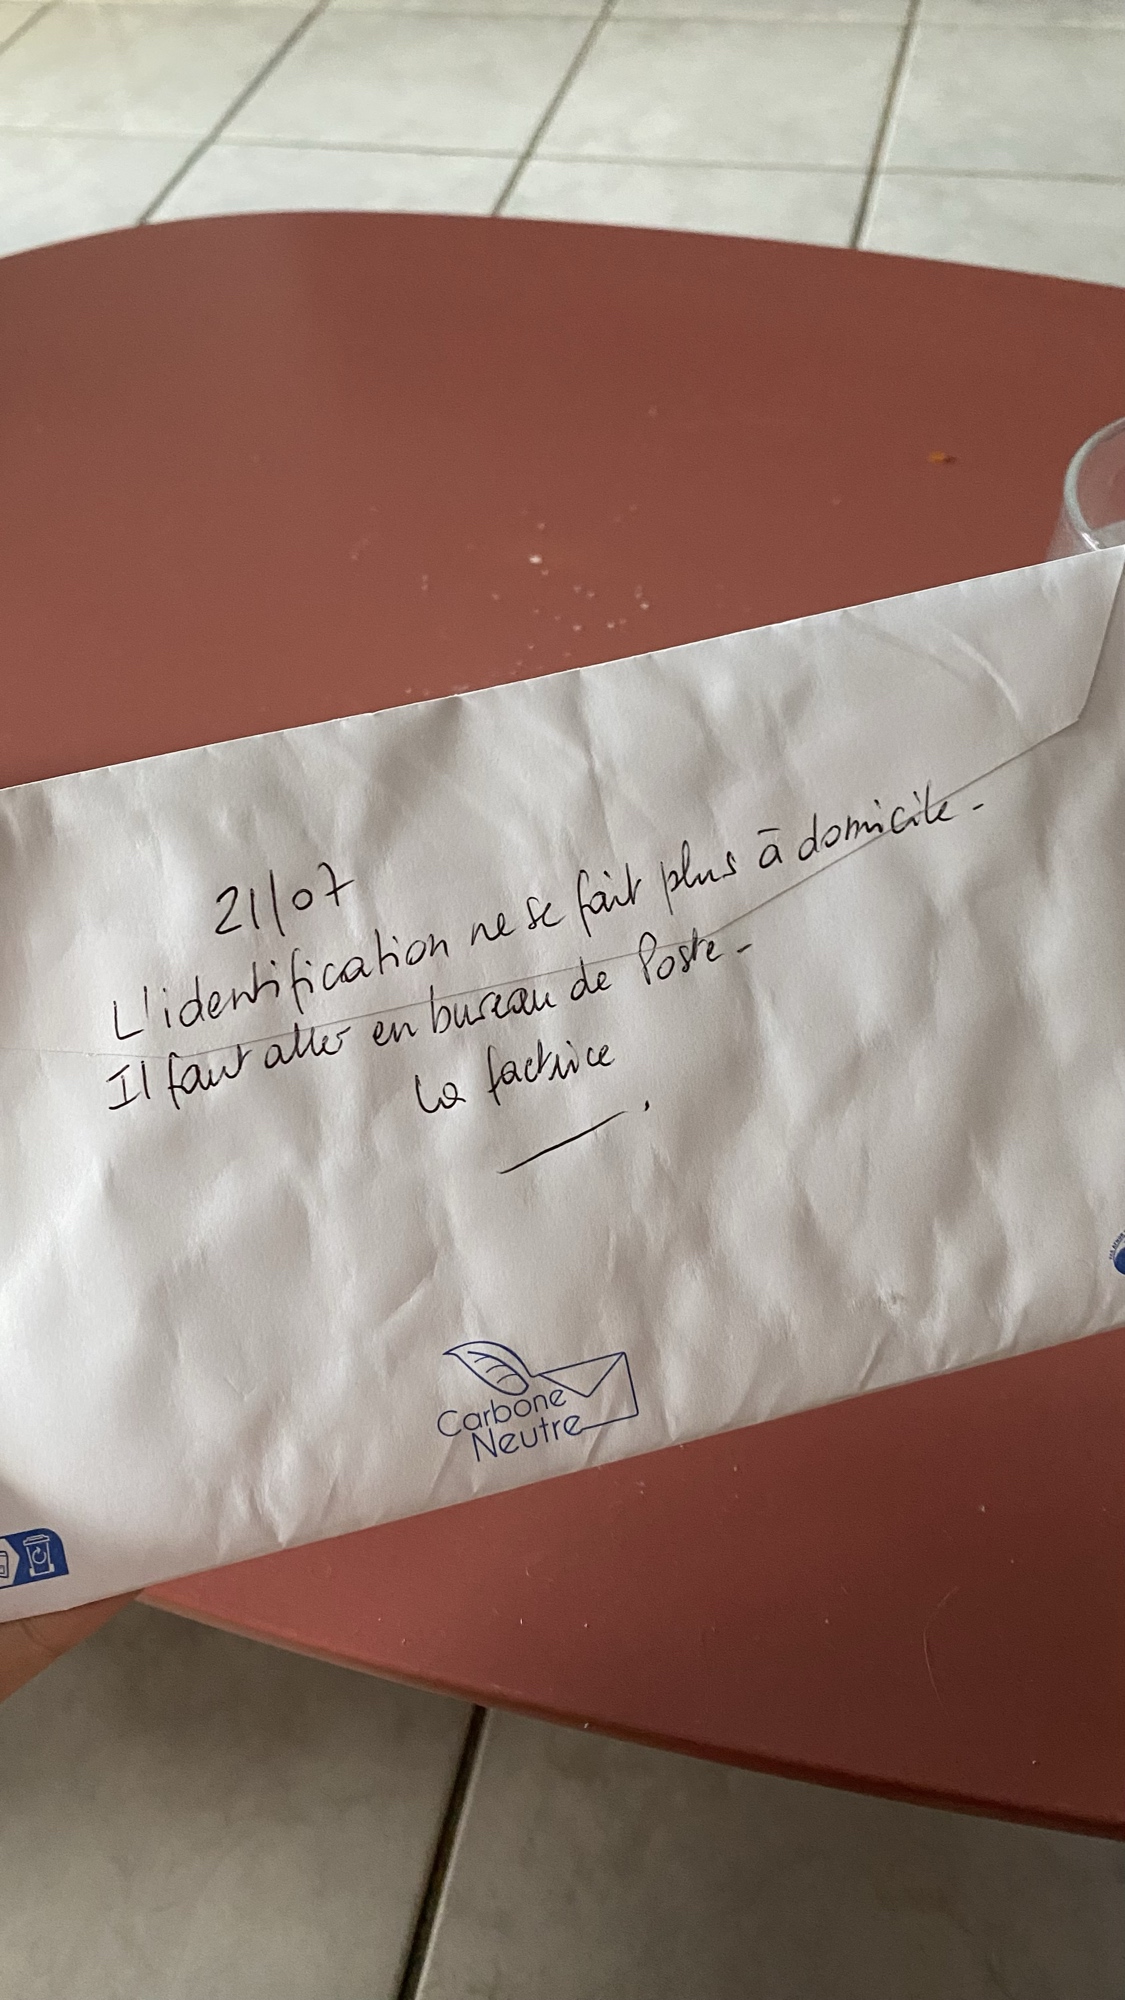 21/07
L'identification ne se fait plus à domicile -
Il faut aller en bureau de Poste -
La factrice
Carbone
Neutre